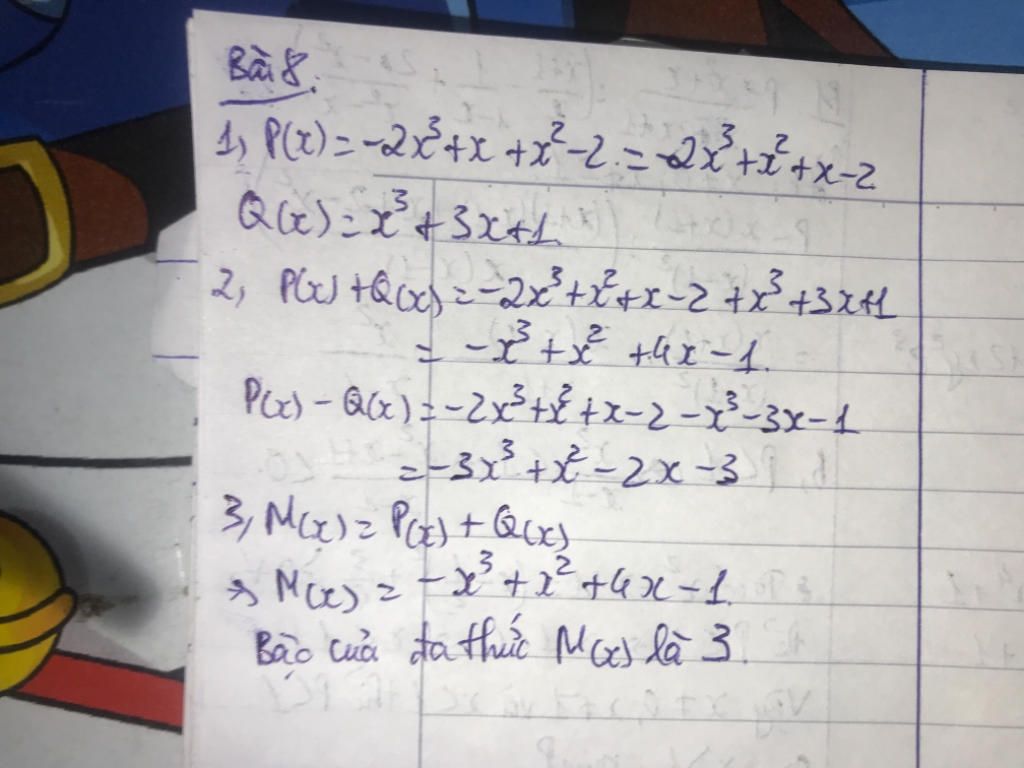 Bài 8.
1, P(x) = -2x³ + x + x² - 2. = -2x³ + x² + x - 2
Q(x) = x³ + 3x + 1.
2, P(x) + Q(x) = -2x³ + x² + x - 2 + x³ + 3x + 1
= -x³ + x² + 4x - 1.
P(x) - Q(x) = -2x³ + x² + x - 2 - x³ - 3x - 1
= -3x³ + x² - 2x - 3
3, M(x) = P(x) + Q(x)
=> M(x) = -x³ + x² + 4x - 1.
Bậc của đa thức M(x) là 3.